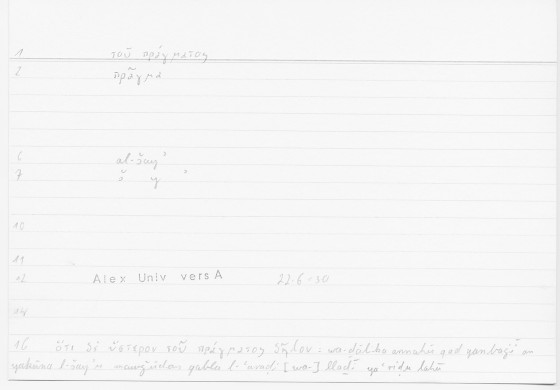 1 τοῦ πράγματος
2 πρᾶγμα
6 al-šayʾ
7 š y ʾ
10
11
12 Alex Univ vers A 22.6-30
14
16 ὅτι δὲ ὕστερον τοῦ πράγματος δῆλον : wa-ḏālika annahū qad yanbaġī an
yakūna l-šayʾu mawǧūdan qabla l-ʿaraḍi [wa-] llaḏī yaʿriḍu lahū